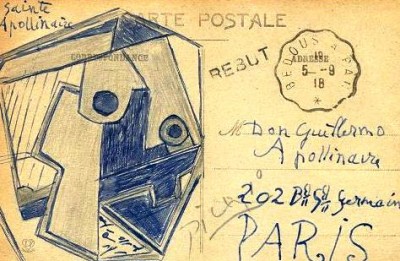 Sainte
Apollinaire
CARTE POSTALE
CORRESPONDANCE
REBUT
ADRESSE
BEDOUS A PAU
5-9
18
M Don Guillermo
Apollinaire
202 Bd St Germain
PARIS